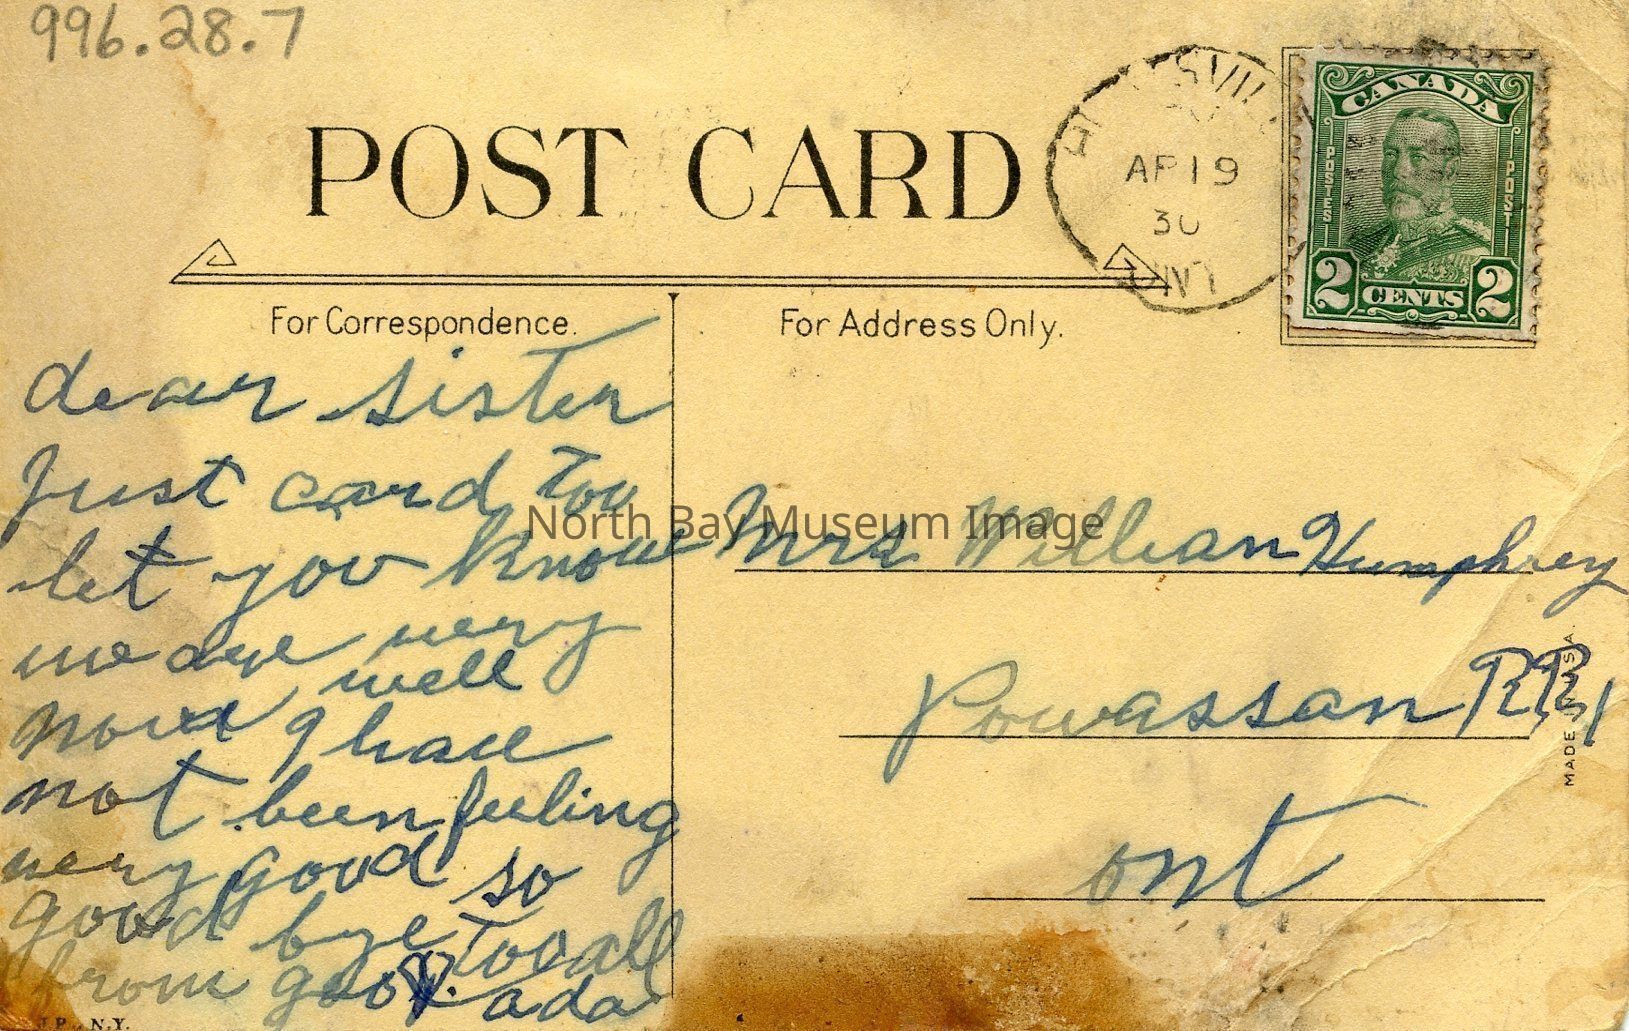 996.28.7
POST CARD
AP 19
30
CANADA
POSTES POST
2 CENTS 2
For Correspondence.
For Address Only.
dear sister
Just card too
let you know
we are very
well
now I have
not been feeling
very good so
good bye too all
from
ada
Mrs William Humphrey
Powassan RR1
ont
North Bay Museum Image
MADE IN U.S.A.
N.Y.